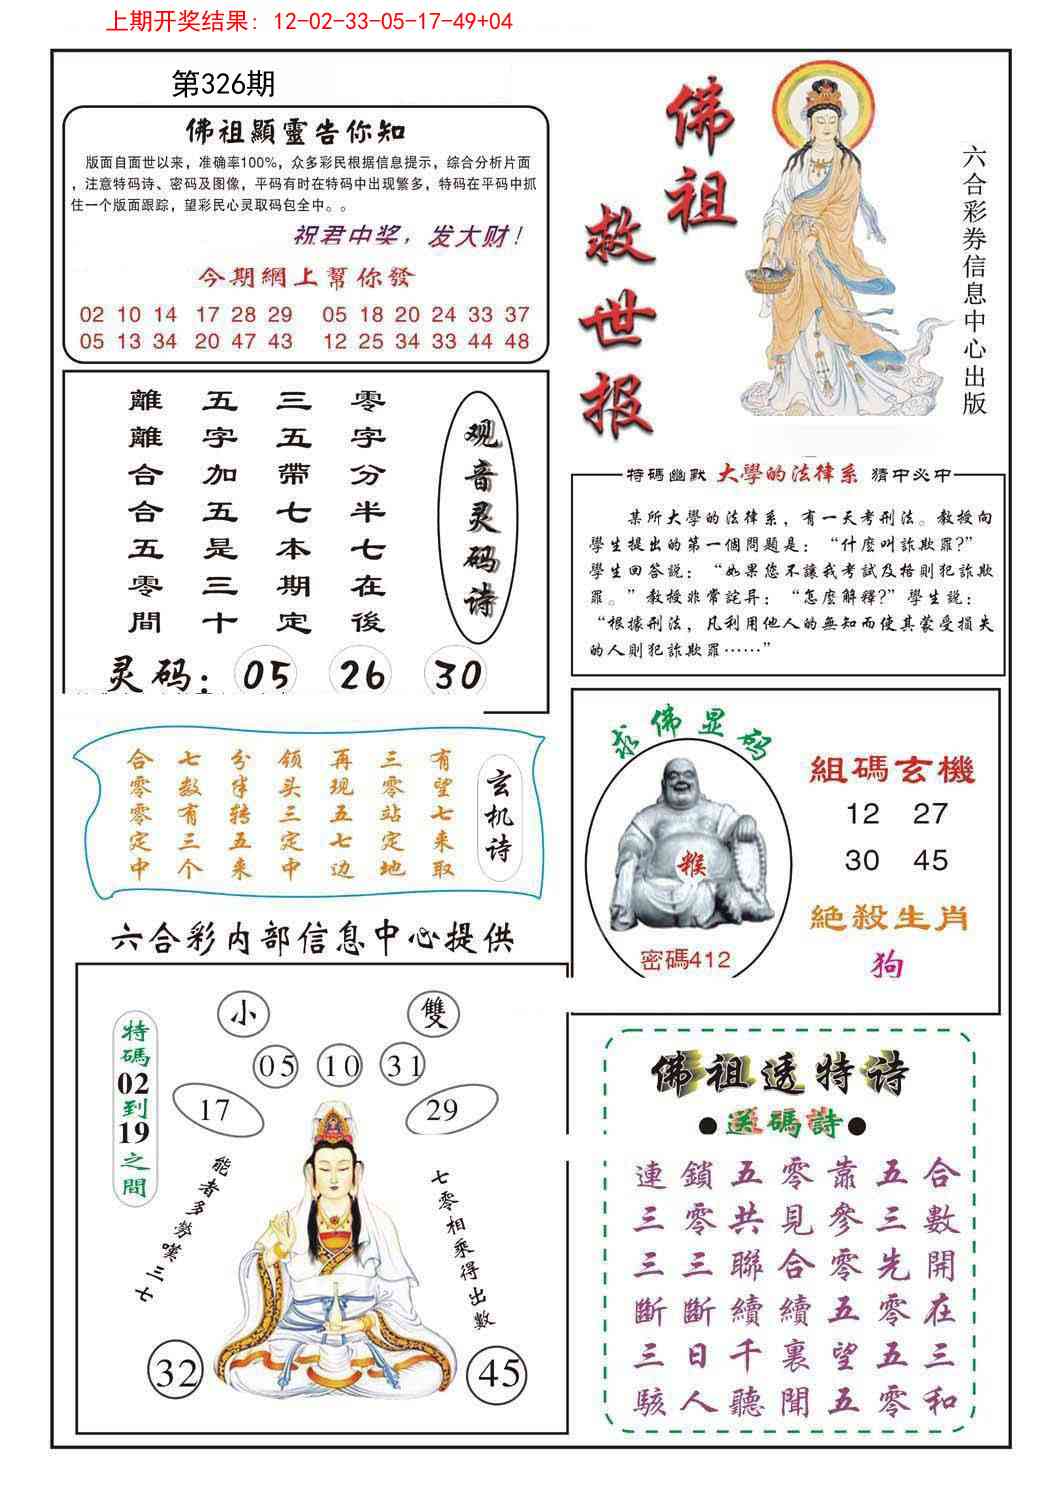 上期开奖结果: 12-02-33-05-17-49+04
第326期
佛祖顯靈告你知
版面自面世以来，准确率100%，众多彩民根据信息提示，综合分析片面
，注意特码诗、密码及图像，平码有时在特码中出现繁多，特码在平码中抓
住一个版面跟踪，望彩民心灵取码包全中。。
祝君中奖，发大财！
今期網上幫你發
02 10 14 17 28 29 05 18 20 24 33 37
05 13 34 20 47 43 12 25 34 33 44 48
佛祖
救世报
六合彩券信息中心出版
观音灵码诗
離離合合五零間
五字加五是三十
三五帶七本期定
零字分半七在後
灵码: 05 26 30
特碼幽默 大學的法律系 猜中必中
某所大學的法律系，有一天考刑法。教授向
學生提出的第一個問題是：“什麼叫詐欺罪?”
學生回答説：“如果您不讓我考試及格則犯詐欺
罪。”教授非常詫异：“怎麼解釋?”學生説：
“根據刑法，凡利用他人的無知而使其蒙受損失
的人則犯詐欺罪……”
玄机诗
有望七来取
三零站定地
再现五七边
领头三定中
分半转五来
七数有三个
合零零定中
求佛显码
猴
密碼412
組碼玄機
12 27
30 45
絶殺生肖
狗
六合彩内部信息中心提供
特碼02到19之間
小 雙
05 10 31
17 29
能者多勞嘆三七
七零相乘得出數
32 45
佛祖透特诗
●送碼詩●
連鎖五零靠五合
三零共見參三數
三三聯合零先開
斷斷續續五零在
三日千裏望五三
駭人聽聞五零和